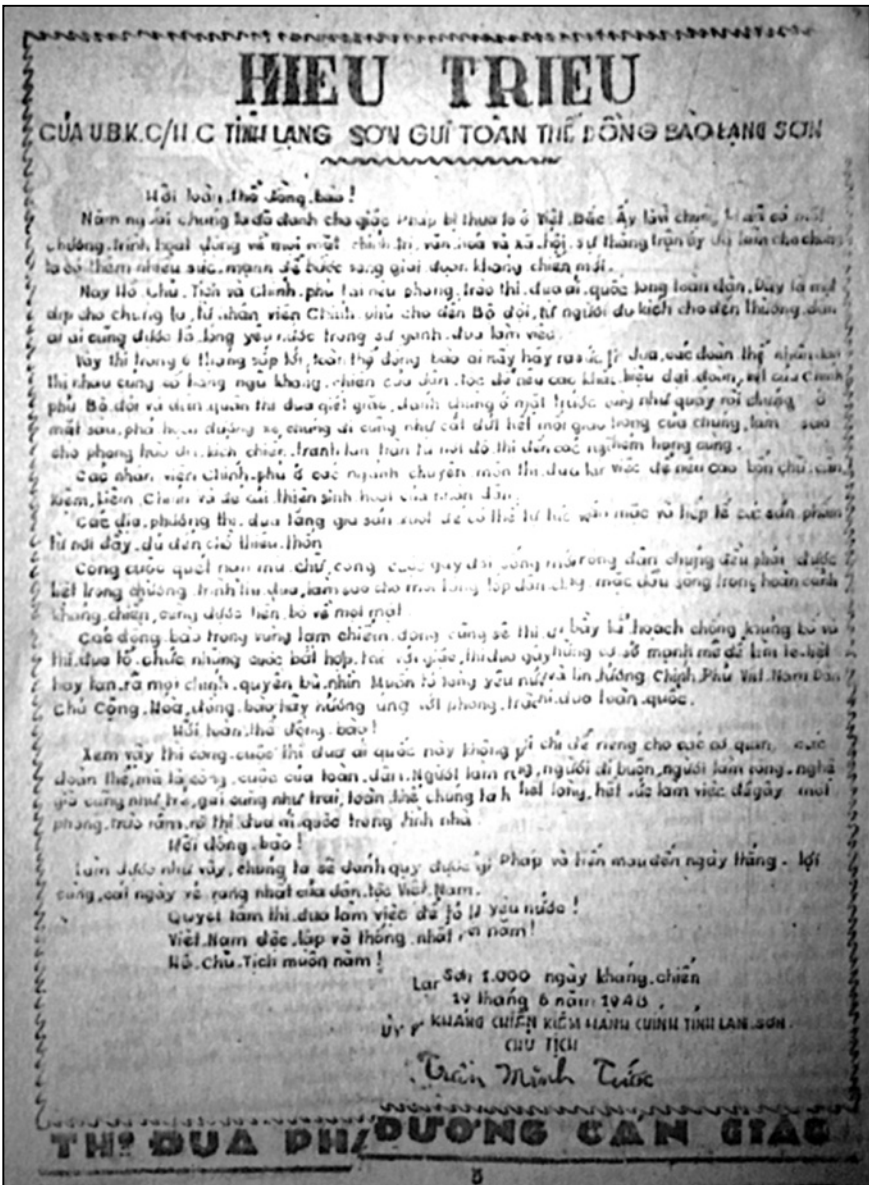 HIEU TRIEU
CỦA U.B.K.C/H.C TỈNH LẠNG SƠN GỬI TOÀN THỂ ĐỒNG BÀO LẠNG SƠN
Hỡi toàn.thể đồng.bào !
Năm ngoái chúng ta đã đánh cho giặc Pháp bị thua to ở Việt.Bắc. Ấy là vì chúng ta đã có một
chương.trình hoạt động về mọi mặt chính.trị, văn.hoá và xã.hội, sự thắng trận ấy đã làm cho chúng
ta có thêm nhiều sức.mạnh để bước sang giai đoạn kháng chiến mới.
Nay Hồ.Chủ.Tịch và Chính.phủ lại nêu phong.trào thi.đua ái.quốc trong toàn dân. Đây là một
dịp cho chúng ta, từ nhân viên Chính.phủ cho đến Bộ đội, từ người du kích cho đến thường.dân
ai ai cũng được tỏ.lòng yêu.nước trong sự ganh.đua làm việc.
Vậy thì trong 6 tháng sắp tới, toàn thể đồng bào ai nấy hãy ra sức thi đua, các đoàn thể nhân dân
thi nhau củng cố hàng ngũ kháng.chiến của dân.tộc để nêu cao khẩu.hiệu đại.đoàn.kết của Chính
phủ Bộ.đội và dân.quân thi đua giết giặc, đánh chúng ở mặt trước cũng như quấy rối chúng ở
mặt sau, phá hoại đường xe chúng đi cũng như cắt đứt hết mọi giao thông của chúng, làm sao
cho phong trào du.kích chiến.tranh lan tràn từ nơi đô.thị đến các nghẽm hang cùng.
Các nhân viên Chính.phủ ở các ngành chuyên.môn thi.đua làm việc để nêu cao bốn chữ: cần
kiệm, liêm, Chính và để cải thiện sinh hoạt của nhân dân.
Các địa.phương thi.đua tăng gia sản xuất để có thể tự túc vận mặc và tiếp tế các sản phẩm
từ nơi đầy.đủ đến chỗ thiếu.thốn
Công cuộc quét nạn mù.chữ, công cuộc gây đời sống mới trong dân chúng đều phải được
kết trong chương.trình thi.đua, làm sao cho mọi tầng lớp dân chúng, mặc dầu sống trong hoàn cảnh
kháng.chiến, cũng được tiến.bộ về mọi mặt.
Các đồng.bào trong vùng tạm chiếm.đóng cũng sẽ thi.đua bày kế hoạch chống khủng bố và
thi.đua tổ.chức những cuộc bất hợp.tác với giặc, thi.đua gây hàng cơ sở mạnh mẽ để làm tê.liệt
hay tan.rã mọi chính.quyền bù.nhìn Muốn tỏ lòng yêu nước và tin.tưởng Chính.Phủ Việt.Nam Dân
Chủ Cộng.Hoà, đồng.bào hãy hưởng ứng với phong.trào thi.đua toàn.quốc.
Hỡi toàn.thể đồng.bào !
Xem vậy thì công.cuộc thi đua ái quốc này không phải chỉ để riêng cho các cơ quan, các
đoàn thể, mà là công.cuộc của toàn.dân. Người làm ruộng, người đi buôn, người làm công.nghệ
già cũng như trẻ, gái cũng như trai, toàn thể chúng ta hết lòng, hết sức làm việc để gây một
phong.trào rầm.rộ thi đua ái.quốc trong tỉnh nhà
Hỡi đồng.bào !
Làm được như vậy, chúng ta sẽ đánh quỵ được giặc Pháp và tiến mau đến ngày thắng.lợi
cùng, cái ngày vẻ vang nhất của dân.tộc Việt.Nam.
Quyết tâm thi.đua làm việc để tỏ lòng yêu nước !
Việt.Nam độc.lập và thống.nhất năm !
Hồ.Chủ.Tịch muôn năm !
Sơn 1.000 ngày kháng.chiến
19 tháng 6 năm 1948.
KHÁNG CHIẾN KIÊM HÀNH CHÍNH TỈNH LẠN.SƠN.
CHỦ TỊCH
Trần Minh Tước
THI ĐUA PHÁ ĐƯỜNG CẢN GIẶC
5